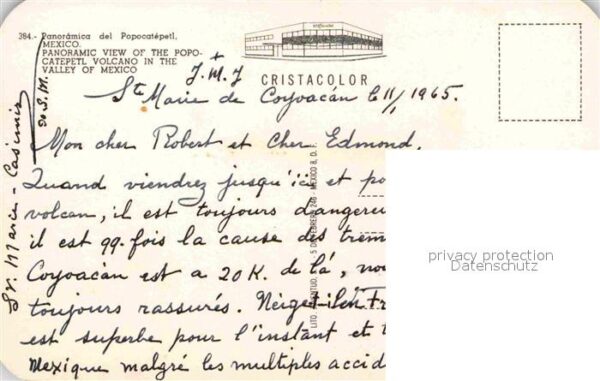 384.- Panorámica del Popocatépetl,
MEXICO.
PANORAMIC VIEW OF THE POPO-
CATEPETL VOLCANO IN THE
VALLEY OF MEXICO
CRISTACOLOR
J. M. J
Ste Marie de Coyoacán le 11/1965.
Mon cher Robert et Cher Edmond,
Quand viendrez jusqu'ici et po
volcan, il est toujours dangereu
il est qq. fois la cause des trem
Coyoacán est a 20 K. de là, no
toujours rassurés. Neige-t-il en Fr
est superbe pour l'instant et t
Mexique malgré les multiples accid
Sr. Marie-Casimir
LITO. 5 DE FEBRERO 246 - MEXICO 8, D. F.
privacy protection
Datenschutz